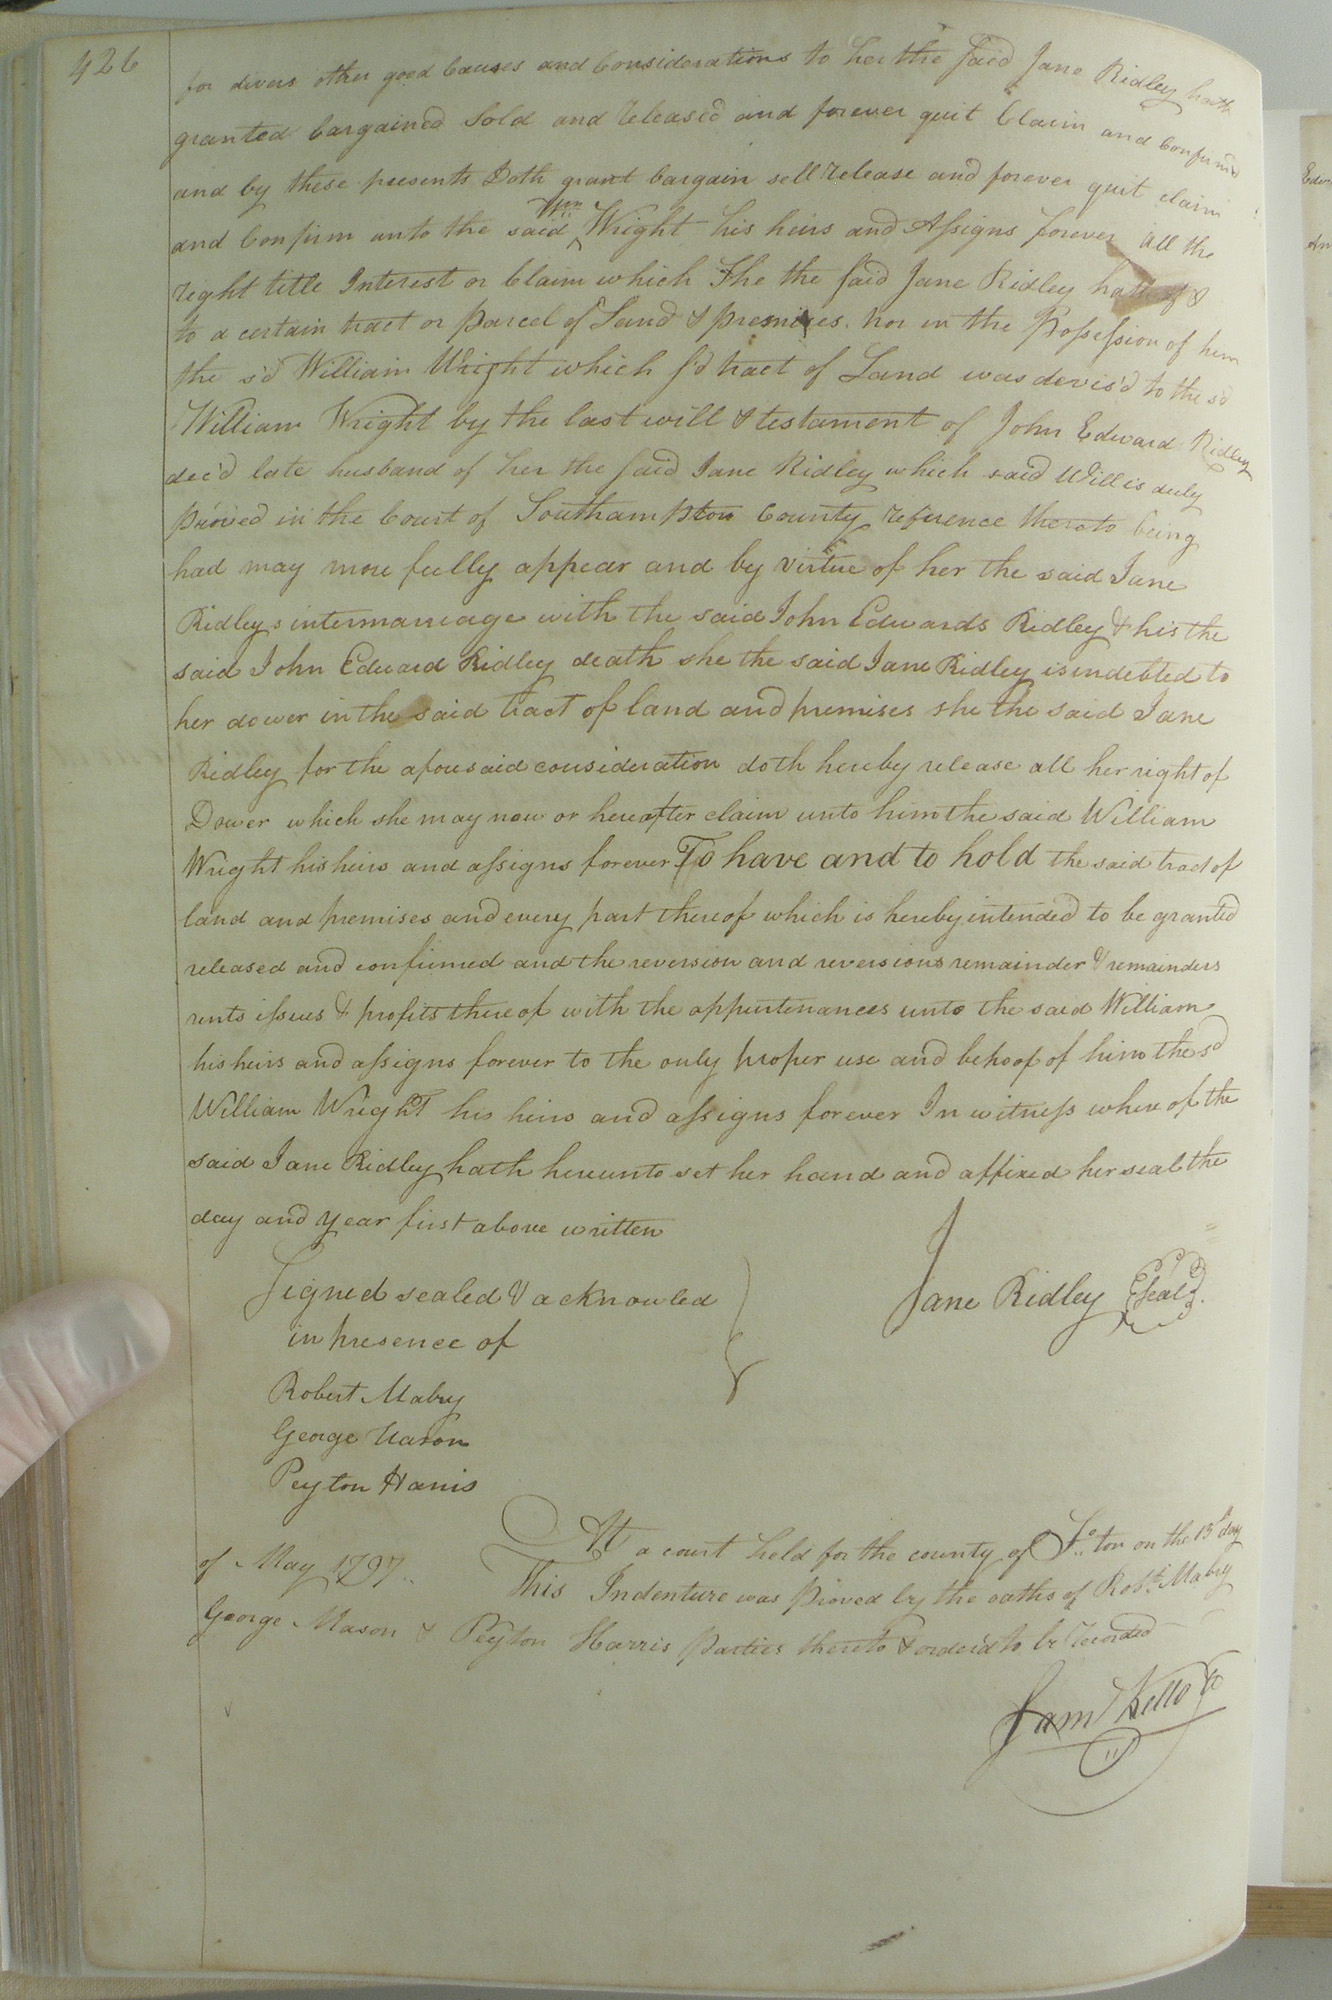 426
for divers other good Causes and Considerations to her the said Jane Ridley hath
granted bargained Sold and released and forever quit Claim and Confirm'd
and by these presents Doth grant bargain sell release and forever quit claim
and Confirm unto the said Wm Wright his heirs and Assigns forever all the
right title Interest or Claim which She the said Jane Ridley hath of &
to a certain tract or parcel of Land & premises. nor in the Prossession of him
the s'd William Wright which s'd tract of Land was devis'd to the s'd
William Wright by the last will & testament of John Edward Ridley
dec'd late husband of her the said Jane Ridley which said Will is duly
proved in the Court of Southampton County reference thereto being
had may more fully appear and by virtue of her the said Jane
Ridleys intermarriage with the said John Edwards Ridley & his the
said John Edward Ridley death she the said Jane Ridley is indebted to
her dower in the said tract of land and premises she the said Jane
Ridley for the aforesaid consideration doth hereby release all her right of
Dower which she may now or hereafter claim unto him the said William
Wright his heirs and assigns forever To have and to hold the said tract of
land and premises and every part thereof which is hereby intended to be granted
released and confirmed and the reversion and reversions remainder & remainders
rents issues & profits thereof with the appurtenances unto the said William
his heirs and assigns forever to the only proper use and behoof of him the sd
William Wright his heirs and assigns forever In witness where of the
said Jane Ridley hath hereunto set her hand and affixed her seal the
day and year first above written
Signed sealed & acknowled
in presence of
Jane Ridley Seal
Robert Mabry
George Mason
Peyton Harris
At a court held for the county of So.ton on the 15th day
of May 1797..
This Indenture was proved by the oaths of Robt. Mabry
George Mason & Peyton Harris parties thereto & order'd to be recorded
Saml Kello